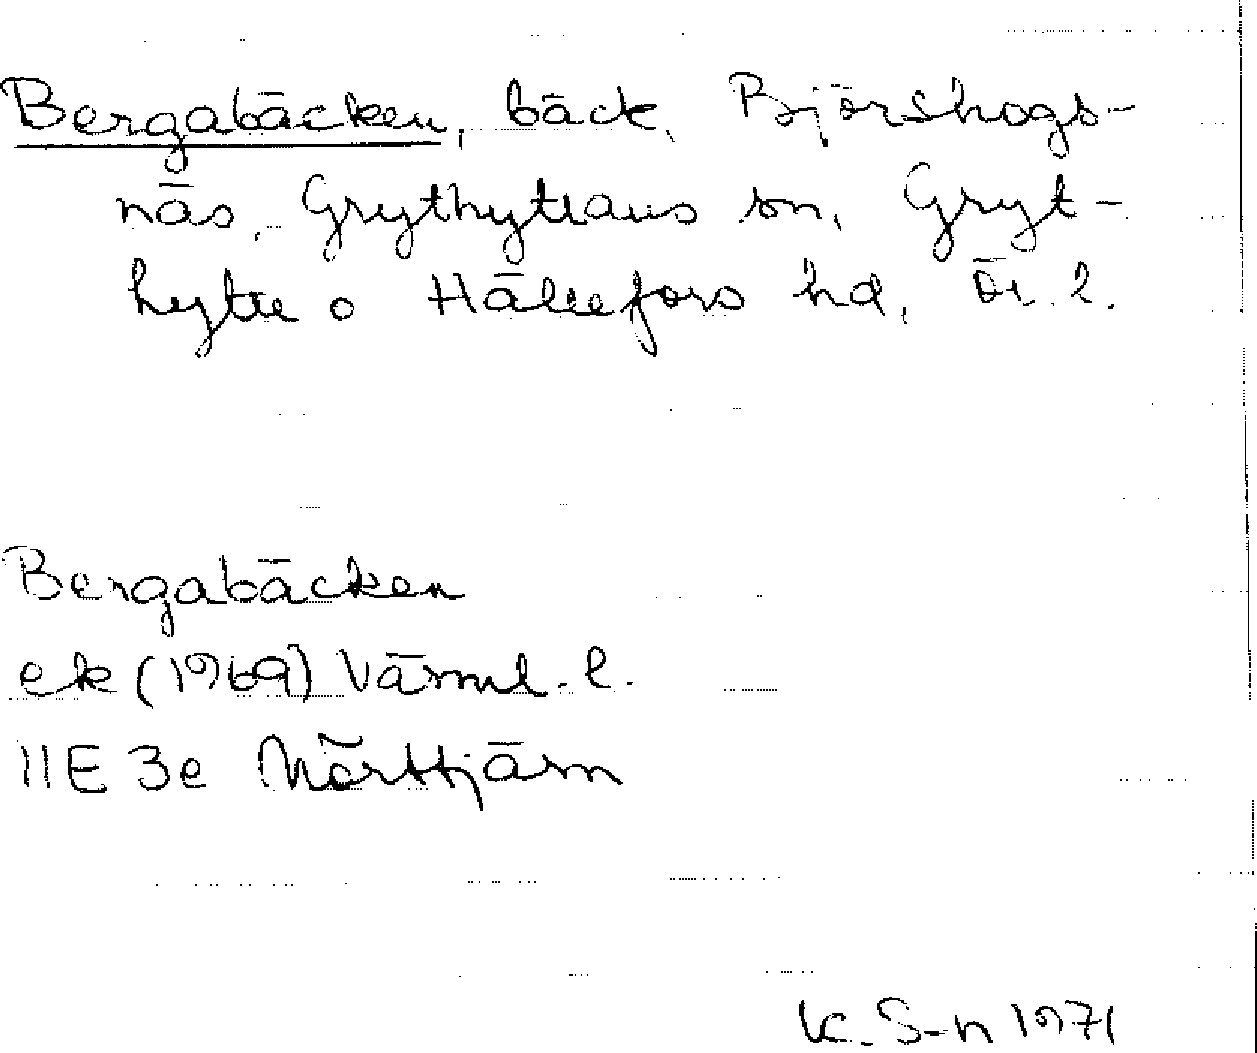 Bergabäcken, bäck, Björskogs-
näs, Grythyttans sn, Gryt-
hytte o Hällefors hd, Ör. l.
Bergabäcken
ek (1969) Värml. l.
11E 3e Mörttjärn
K. S-n 1971